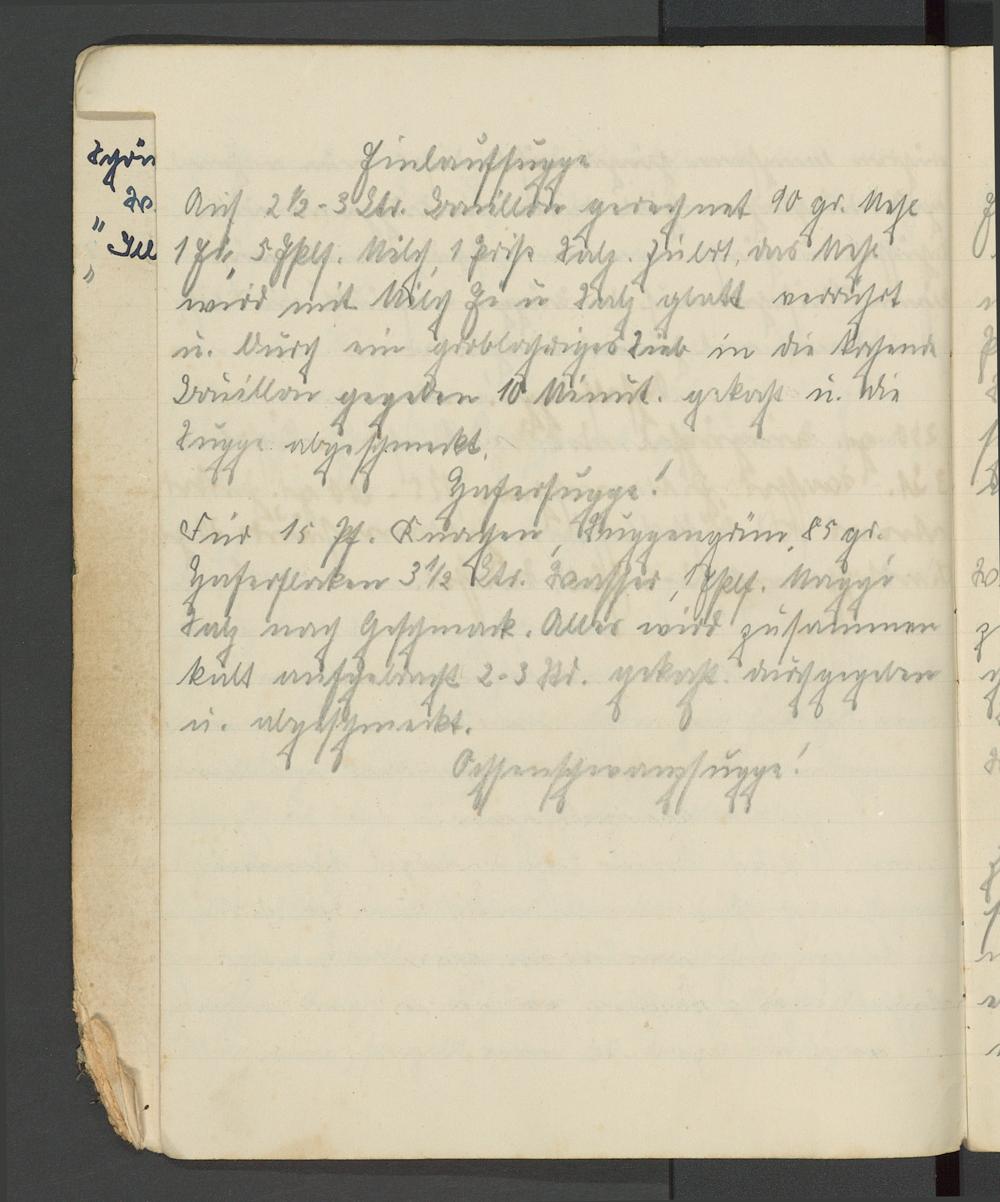 Einlaufsuppe
Auf 2½-3 Ltr. Bouillon gerechnet 90 gr. Mehl
1 Ei, 5 Eßlf. Milch, 1 Prise Salz. Zubrt. das Mehl
wird mit Milch Ei u Salz glatt verrührt
u. durch ein groblochriges Sieb in die kochende
Bouillon gegeben 10 Minut. gekocht u. die
Suppe abgeschmeckt.
Hafersuppe!
Für 15 Pf. Knochen, Suppengrün, 85 gr.
Haferfloken 3½ Ltr. Wasser, 1 Eßlf. Maggi
Salz nach Geschmack. Alles wird zusammen
kalt aufgebracht 2-3 Std. gekocht. durchgegeben
u. abgeschmeckt.
Ochsenschwanzsuppe!
Schön
W.
"
"